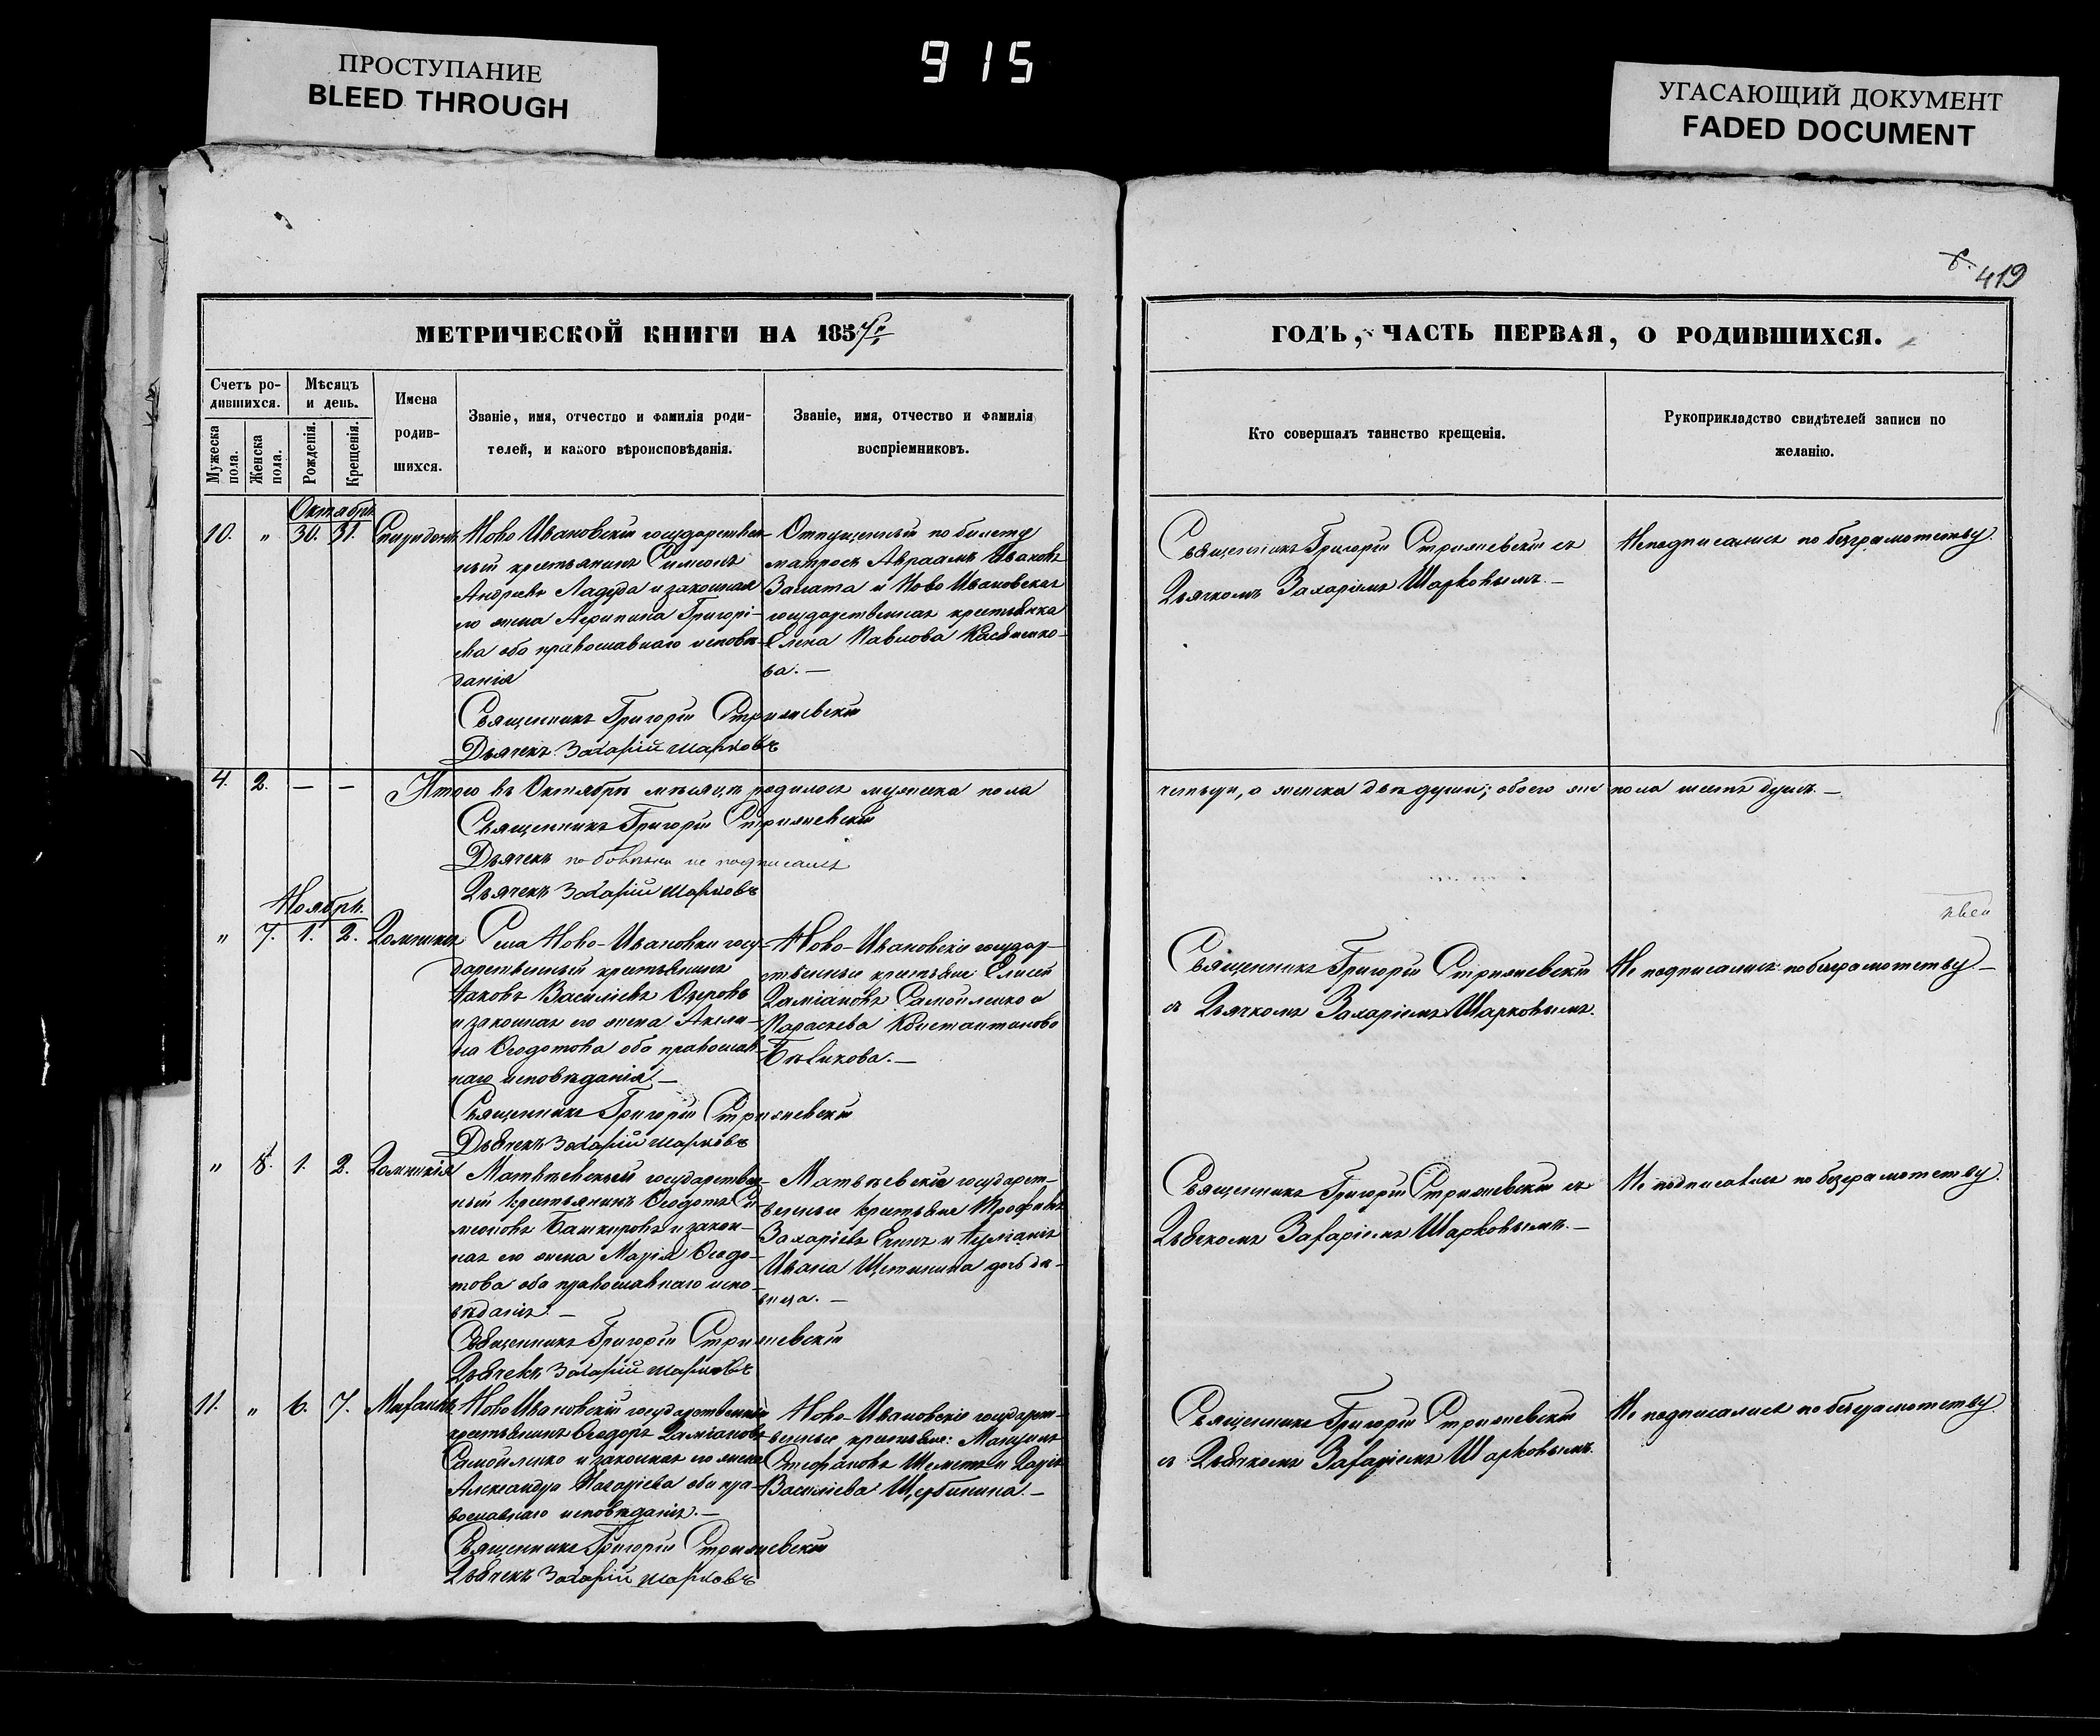 ПРОСТУПАНИЕ
BLEED THROUGH
915
УГАСАЮЩИЙ ДОКУМЕНТ
FADED DOCUMENT
419
МЕТРИЧЕСКОЙ КНИГИ НА 185
ГОДЪ, ЧАСТЬ ПЕРВАЯ, О РОДИВШИХСЯ.
Счетъ ро-
дившихся.
Мужеска пола.
Женска пола.
Мѣсяцъ
и день.
Рожденія.
Крещенія.
Имена
родив-
шихся.
Званіе, имя, отчество и фамилія роди-
телей, и какого вѣроисповѣданія.
Званіе, имя, отчество и фамилія
воспріемниковъ.
Кто совершалъ таинство крещенія.
Рукоприкладство свидѣтелей записи по
желанію.
Октябрь
10. " 30. 31. Спиридонъ
Ново Ивановскій государствен-
ный крестьянинъ Симеонъ
Андреевъ Ладуда и законная
его жена Агрипина Григорі-
ева оба православнаго исповѣ-
данія
Священникъ Григорій Стрижевскій
Дьячекъ Захарій Шарковъ
Отпущенный по билету
матросъ Авраамъ Ивановъ
Заната и Ново Ивановская
государственная крестьянка
Елена Павлова
ва. —
Священникъ Григорій Стрижевскій съ
Дьячкомъ Захаріемъ Шарковымъ. —
Неподписались по безграмотству.
4. 2. — — Итого въ Октябрѣ мѣсяцѣ родилось мужеска пола
четыре, а женска двѣ души; обоего же пола шесть душъ. —
Священникъ Григорій Стрижевскій
Дьячекъ по болѣзни не подписался
Дьячекъ Захарій Шарковъ
Ноябрь.
" 7. 1. 2. Домникія
Села Ново-Ивановки госу-
дарственный крестьянинъ
Іаковъ Василіевъ Озеровъ
и законная его жена Акили-
на Ѳеодотова оба православ-
наго исповѣданія. —
Священникъ Григорій Стрижевскій
Дьячекъ Захарій Шарковъ
Ново-Ивановскіе государ-
ственные крестьяне: Елисей
Даміановъ Самойленко и
Параскева Константинова
Бѣликова. —
Священникъ Григорій Стрижевскій
съ Дьячкомъ Захаріемъ Шарковымъ.
Не подписались по безграмотству —
" 8. 1. 2. Домникія
Матвѣевскій государствен-
ный крестьянинъ Ѳеодотъ Си-
меоновъ Башкировъ и закон-
ная его жена Марія Ѳеодо-
това оба православнаго испо-
вѣданія. —
Священникъ Григорій Стрижевскій
Дьячекъ Захарій Шарковъ
Матвѣевскіе государст-
венные крестьяне Трофимъ
Захаріевъ и
Ивана Щетинина дочь дѣ-
вица. —
Священникъ Григорій Стрижевскій съ
Дьячкомъ Захаріемъ Шарковымъ. —
Не подписались по безграмотству.
11. " 6. 7. Михаилъ
Ново Ивановскій государственный
крестьянинъ Ѳеодоръ Даміановъ
Самойленко и законная его жена
Александра Макаріева оба пра-
вославнаго исповѣданія. —
Священникъ Григорій Стрижевскій
Дьячекъ Захарій Шарковъ
Ново-Ивановскіе государст-
венные крестьяне: Максимъ
Стефановъ Шеметъ и Дарія
Василіева Щербинина. —
Священникъ Григорій Стрижевскій
съ Дьячкомъ Захаріемъ Шарковымъ.
Не подписались по безграмотству